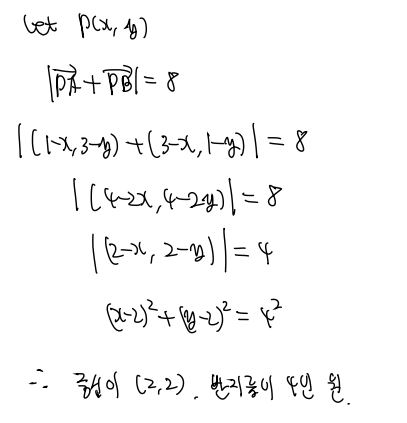 let P(x, y)
|PA→ + PB→| = 8
|(1-x, 3-y) + (3-x, 1-y)| = 8
|(4-2x, 4-2y)| = 8
|(2-x, 2-y)| = 4
(x-2)² + (y-2)² = 4²
∴ 중심이 (2,2), 반지름이 4인 원.